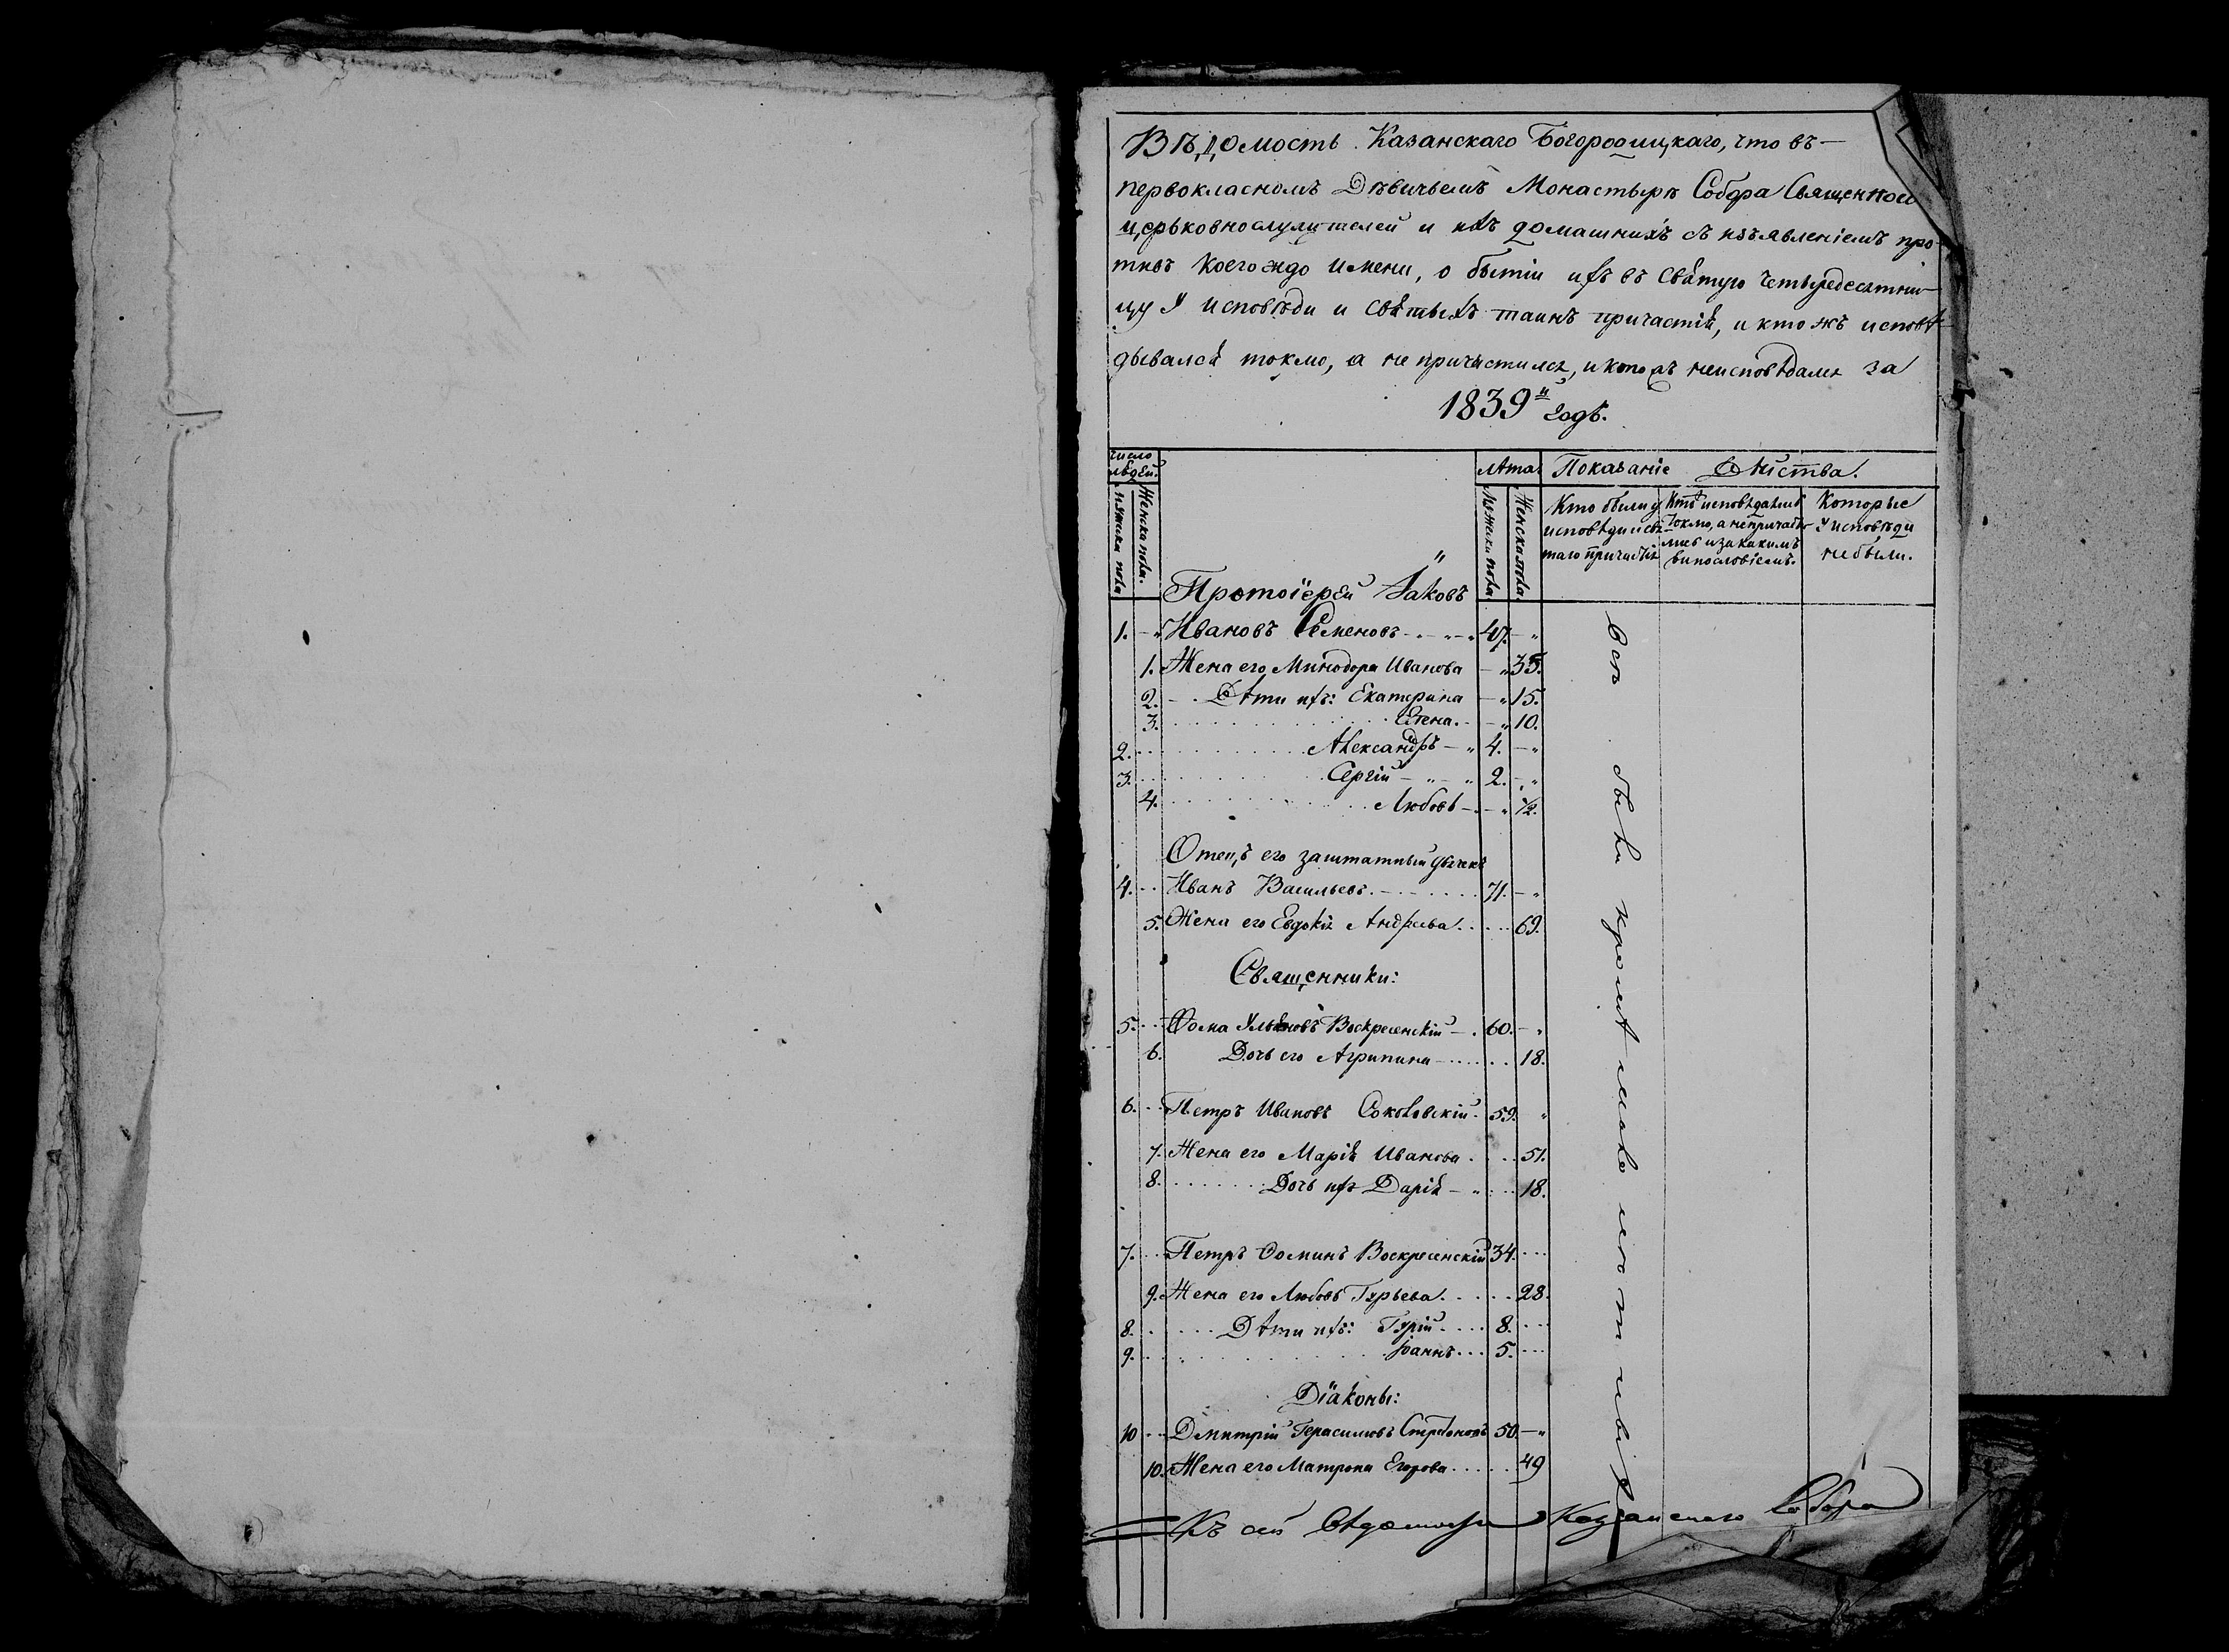 Вѣдомость Казанскаго Богородицкаго, что въ—
первокласномъ Дѣвичьемъ Монастырѣ Собора Священно и
церьковнослужителей и ихъ домашнихъ съ изъявленіемъ про-
тивъ коегождо имени, о бытіи ихъ въ Святую Четыредесятни-
цу у исповѣди и святыхъ таинъ причастія, и кто жъ исповѣ-
дывался токмо, а не причастился, и кто неисповѣдался за
1839й Годъ.
Число людей. Лѣта. Показаніе Дѣйства.
Мужска пола Женска пола. Мужска пола. Женска пола. Кто были у исповѣди и свя-таго причастія Кто исповѣдался токмо, а не причасти-лись и за какимъ винословіемъ. Которые у исповѣди не были.
Протоіерей Іаковъ
1. " Ивановъ Семеновъ 47. "
1. Жена его Минодора Иванова " 35.
2. Дѣти ихъ: Екатерина " 15.
3. Елена. " 10.
2. Александръ 4. "
3. Сергій 2. "
4. Любовь " 1/2.
Отецъ его заштатный дьячекъ
4. Иванъ Васильевъ. 71. "
5. Жена его Евдокія Андреева. 69.
Священники:
5. Фома Ульяновъ Воскресенскій 60. "
6. Дочь его Агрипина 18.
6. Петръ Ивановъ Соколовскій. 59. "
7. Жена его Марія Иванова 51.
8. Дочь ихъ Дарія 18.
7. Петръ Фоминъ Воскресенскій 34.
9. Жена его Любовь Гурьева. 28.
8. Дѣти ихъ: Гурій 8.
9. Іоаннъ 5.
Діаконы:
10 Дмитрій Герасимовъ 50. "
10. Жена его Матрона Егорова 49
Всѣ были кромѣ малолѣтнихъ
Къ сей вѣдомости Казанскаго Собора